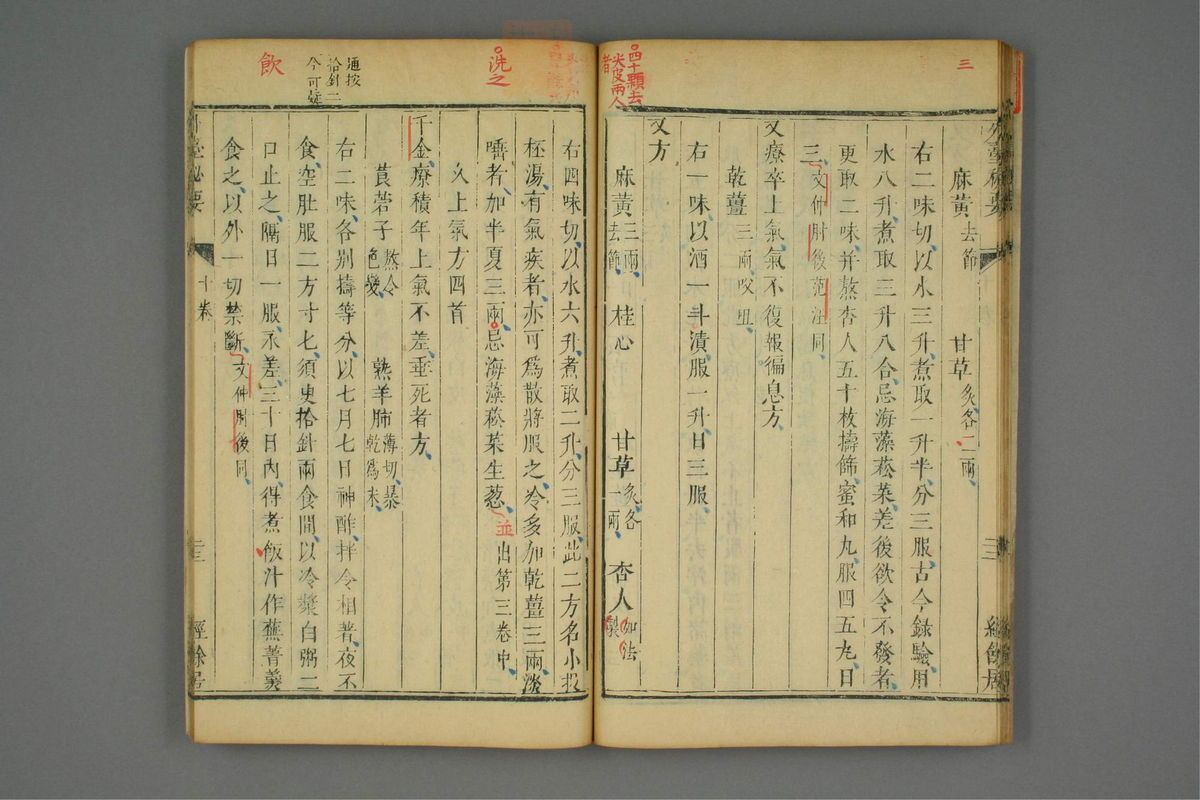 三
麻黃去節 甘草炙各二兩
右二味切以水三升煮取一升半分三服古今録驗用
水八升煮取三升八合忌海藻菘菜差後欲令不發者
更取二味并熬杏人五十枚擣篩蜜和丸服四五丸日
三文仲肘後范汪同
又療卒上氣氣不復報徧息方
乾薑三兩㕮咀
右一味以酒一斗漬服一升日三服
又方
四十顆去
尖皮兩人
者
麻黃三兩去節 桂心 甘草炙各一兩 杏人如法製
洗之
右四味切以水六升煮取二升分三服此二方名小投
杯湯有氣疾者亦可爲散將服之冷多加乾薑三兩淡
嚌者加半夏三兩忌海藻菘菜生葱並出第三卷中
久上氣方四首
千金療積年上氣不差垂死者方
莨菪子熬令色變 熟羊肺薄切暴乾爲末
通按
拾針二
今可疑
右二味各别擣等分以七月七日神酢拌令相著夜不
食空肚服二方寸七須臾拾針兩食間以冷漿白粥二
飲
口止之隔日一服永差三十日內得煮飯汁作蕪菁羹
食之以外一切禁斷文仲肘後同
外臺祕要 十卷 三 經餘居